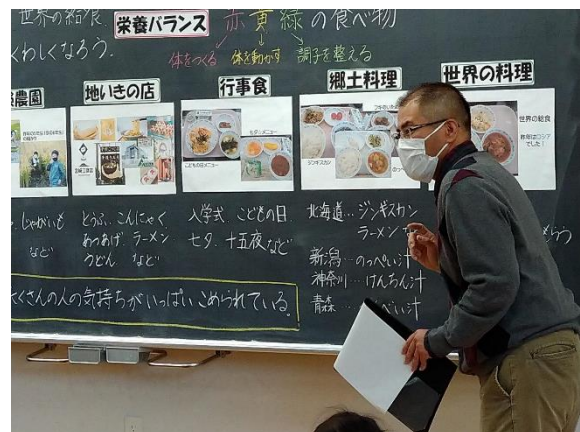 世界の給食
栄養バランス 赤 黄 緑 の食べ物
くわしくなろう.
体をつくる 体を動かす 調子を整える
農園
地いきの店
行事食
郷土料理
世界の料理
こどもの日メニュー
ジンギスカン
世界の給食
昨年はロシア
でした!
じゃがいも
など
とうふ、こんにゃく
あつあげ ラーメン
うどん など
入学式 こどもの日
七夕、十五夜など
北海道…ジンギスカン
ラーメン
新潟…のっぺい汁
神奈川…けんちん汁
青森…べい汁
くさんの人の気持ちがいっぱいこめられている。